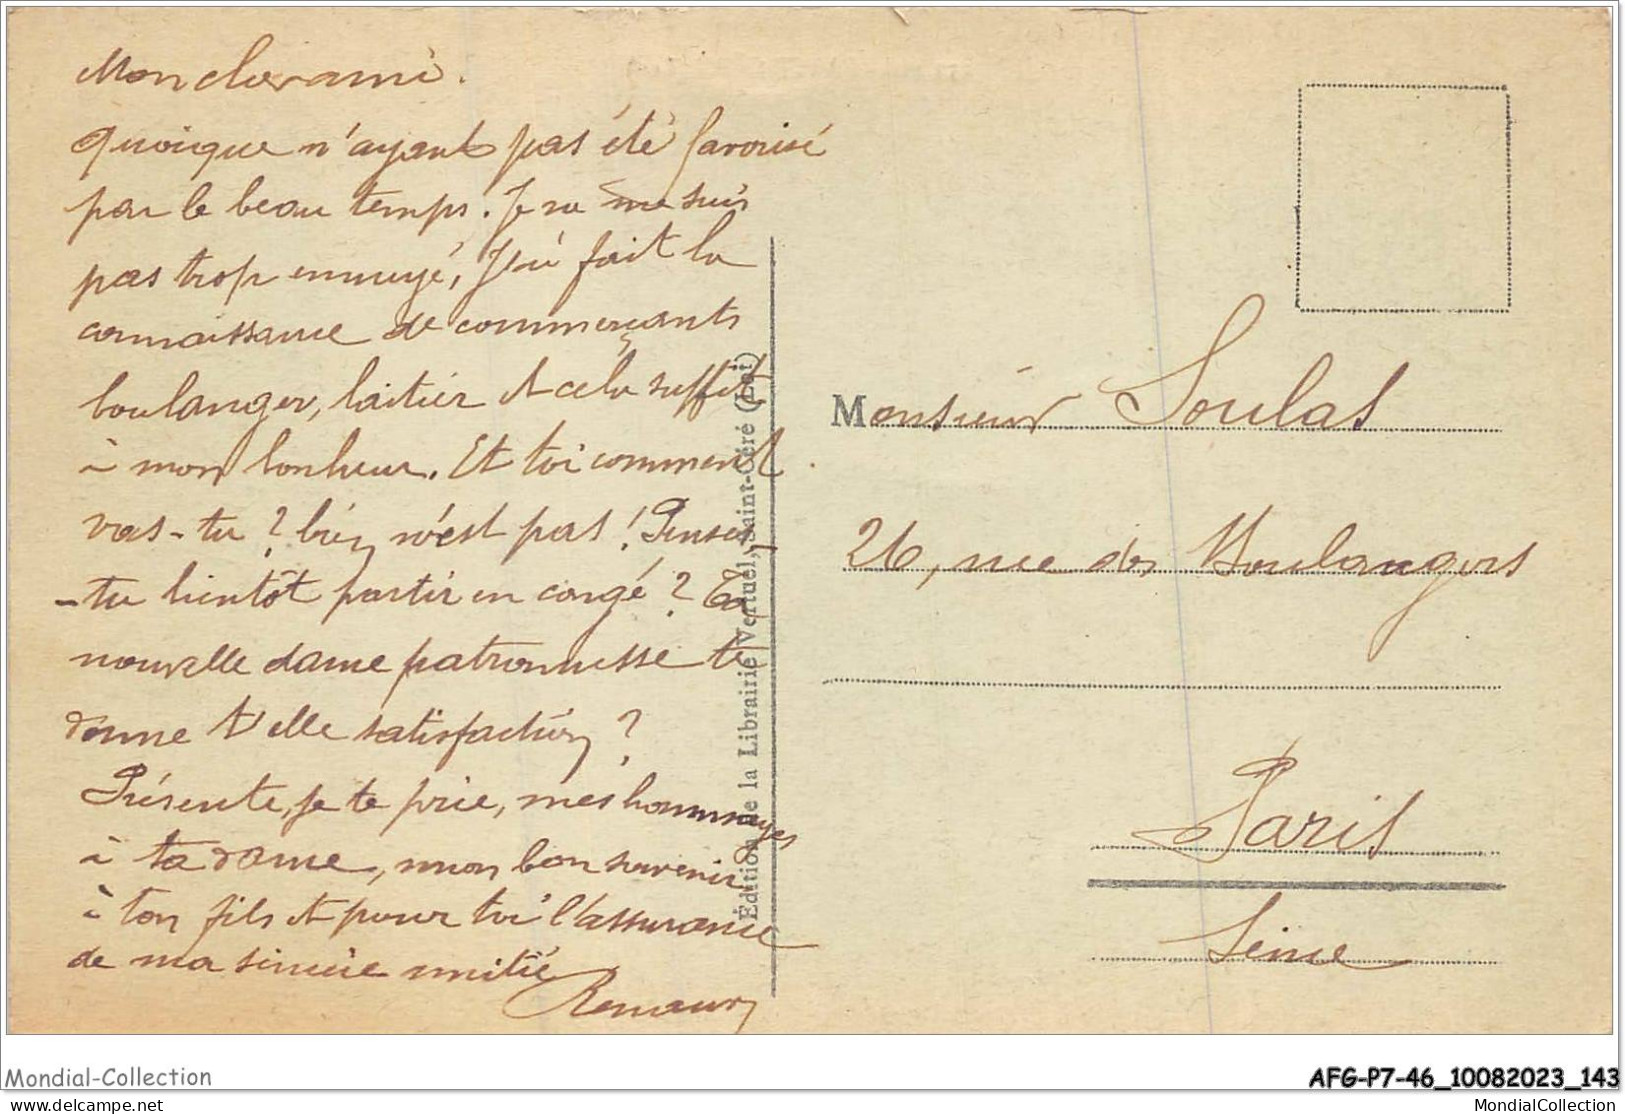 Mon cher ami.
quoique n'ayant pas été favorisé
par le beau temps. Je ne me suis
pas trop ennuyé, J'ai fait la
connaissance de commerçants
boulanger, laitier et cela suffit
à mon bonheur. Et toi comment
vas-tu ? bien n'est pas ! Penses
-tu bientôt partir en congé ? Ta
nouvelle dame patronnesse te
donne t'elle satisfaction ?
Présente, je te prie, mes hommages
à ta dame, mon bon souvenir
à ton fils et pour toi l'assurance
de ma sincère amitié
Édition de la Librairie Vertuel, Saint-Céré (Lot)
Monsieur Soulas
26, rue des Boulangers
Paris
Seine
Mondial-Collection
AFG-P7-46_10082023_143
delcampe.net
MondialCollection